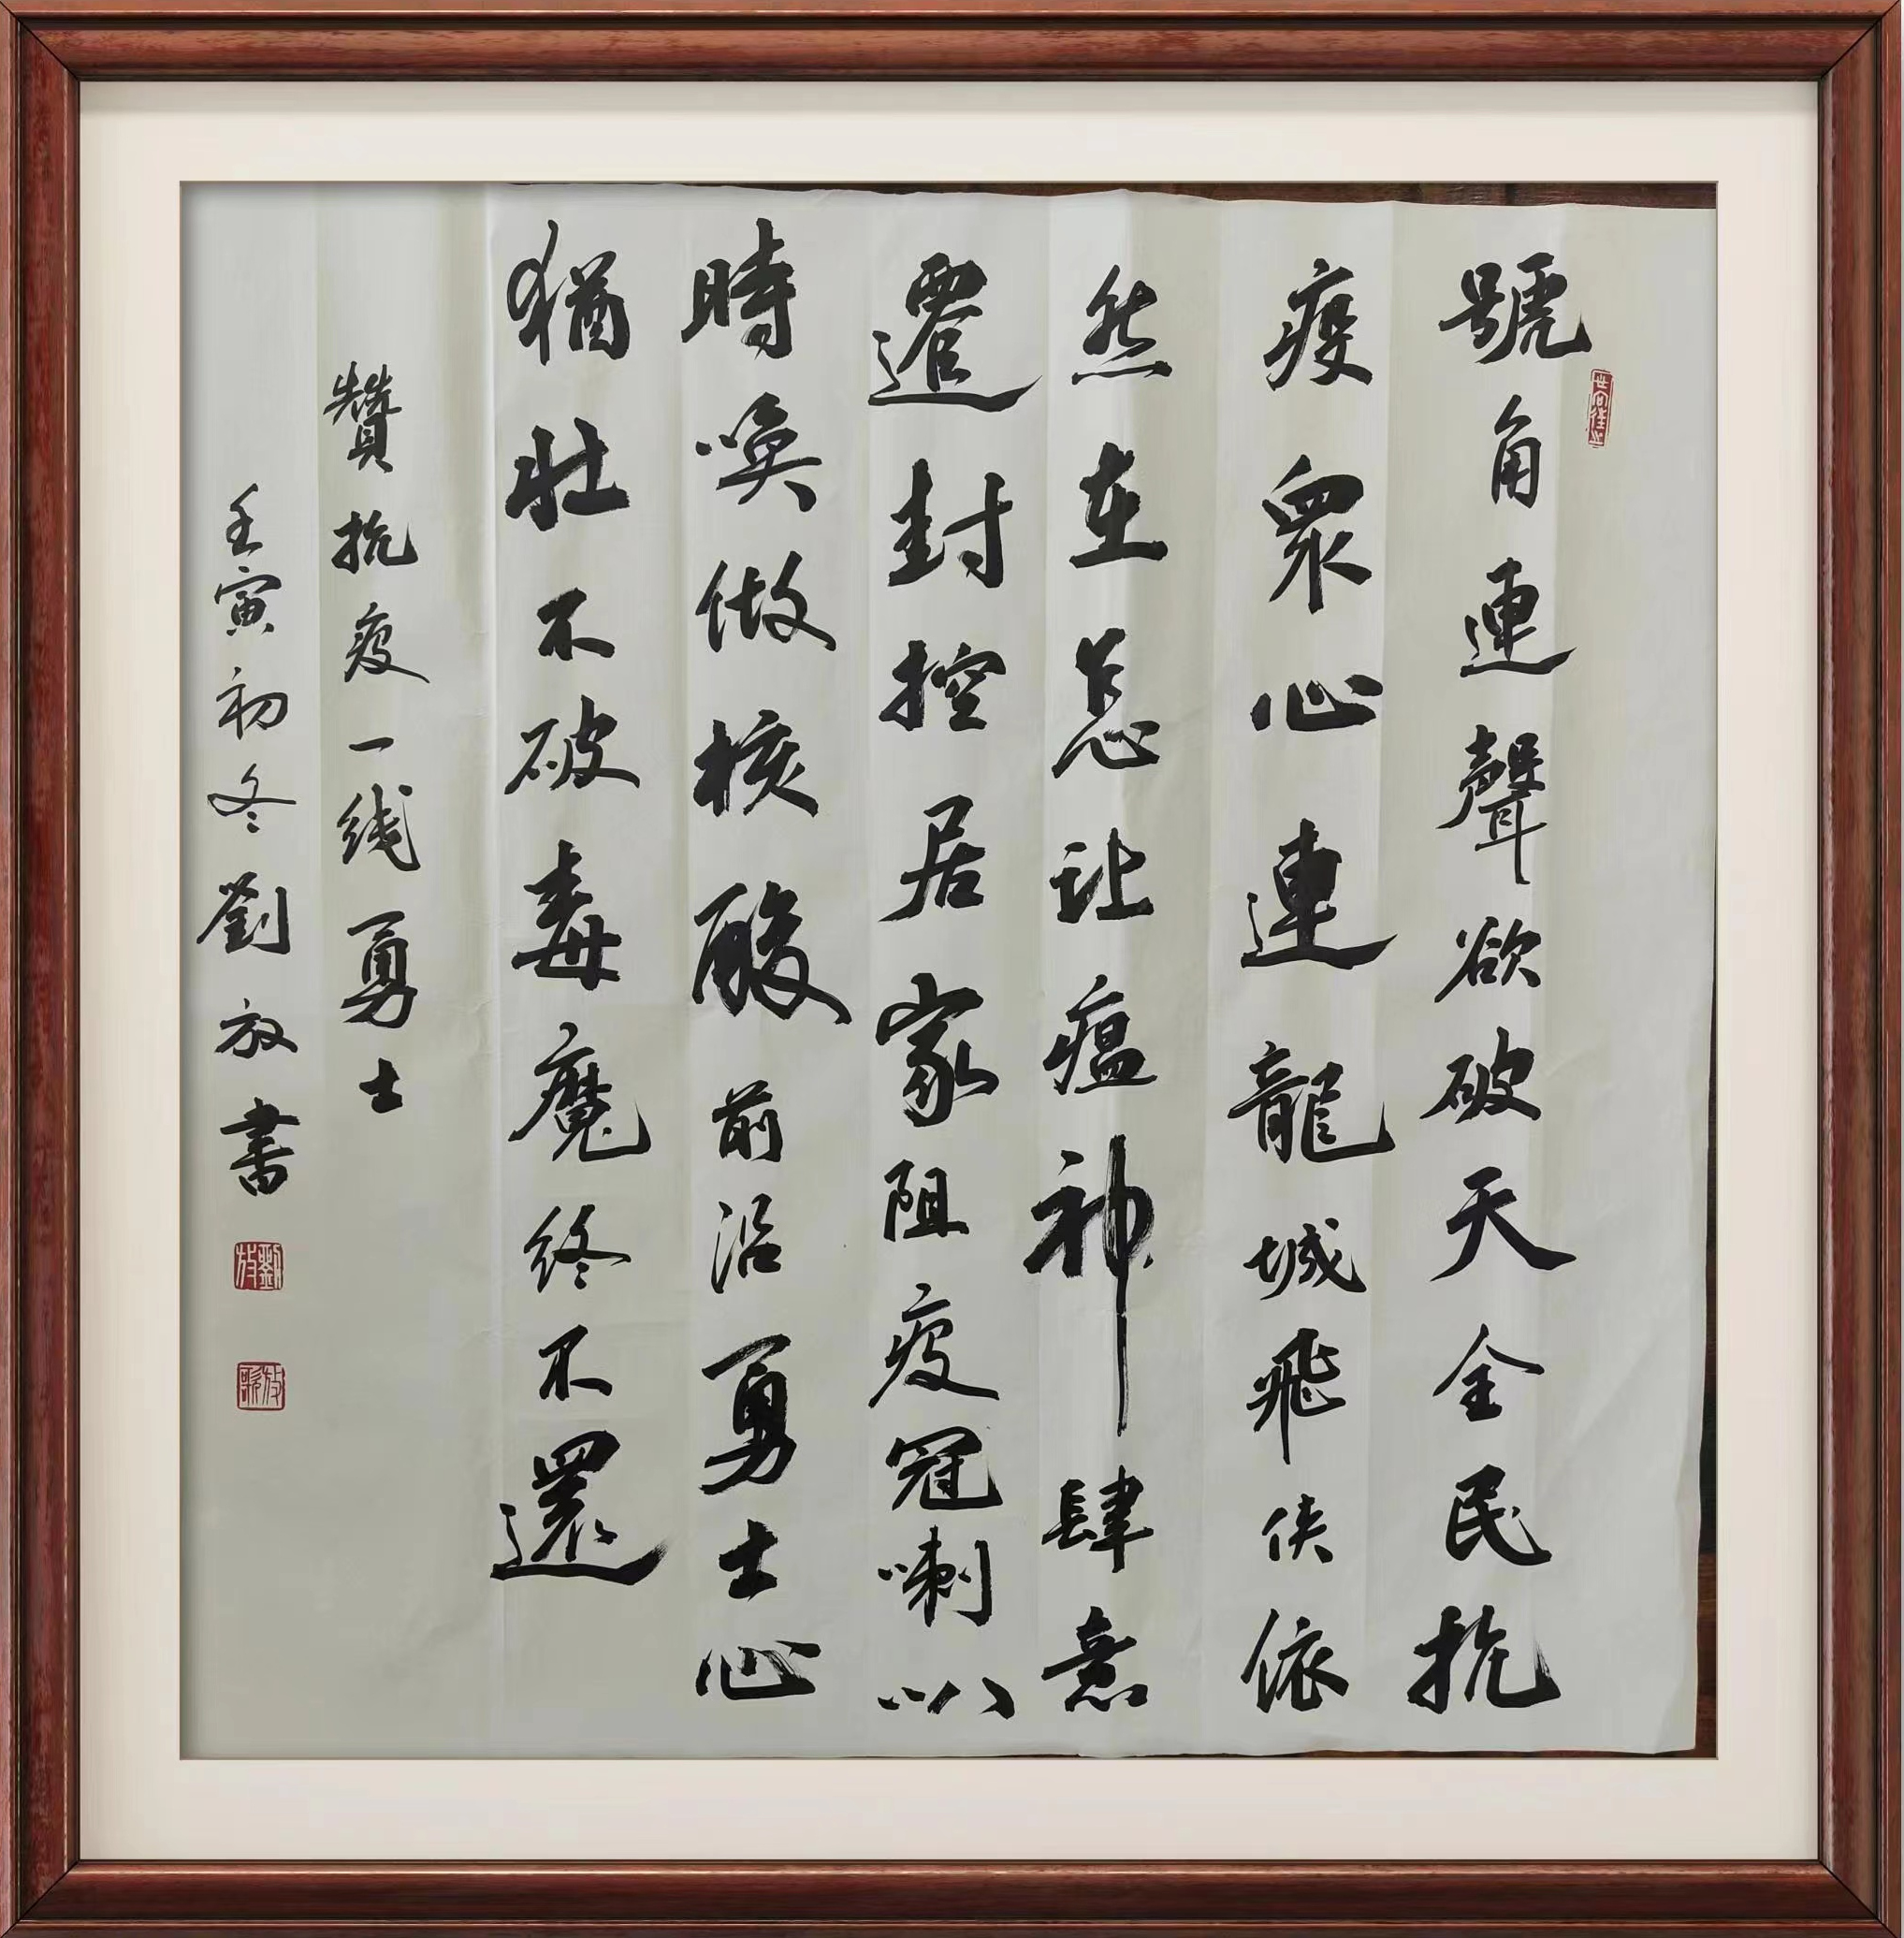 號角連聲欲破天全民抗
疫眾心連龍城飛侠依
然在怎让瘟神肆意
遷封控居家阻疫冠喇叭
時喚做核酸前沿勇士心
猶壯不破毒魔终不還
贊抗疫一线勇士
壬寅初冬劉放書
劉放
放歌